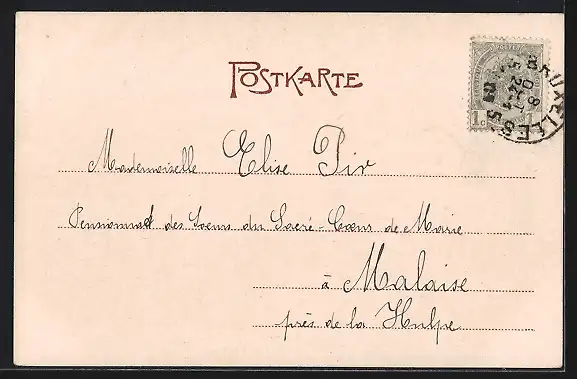 POSTKARTE
1c 1c
BRUXELLES
Mademoiselle Elise Pir
Pensionnat des Soeurs du Sacré-Coeur de Marie
à Malaise
près de la Hulpe